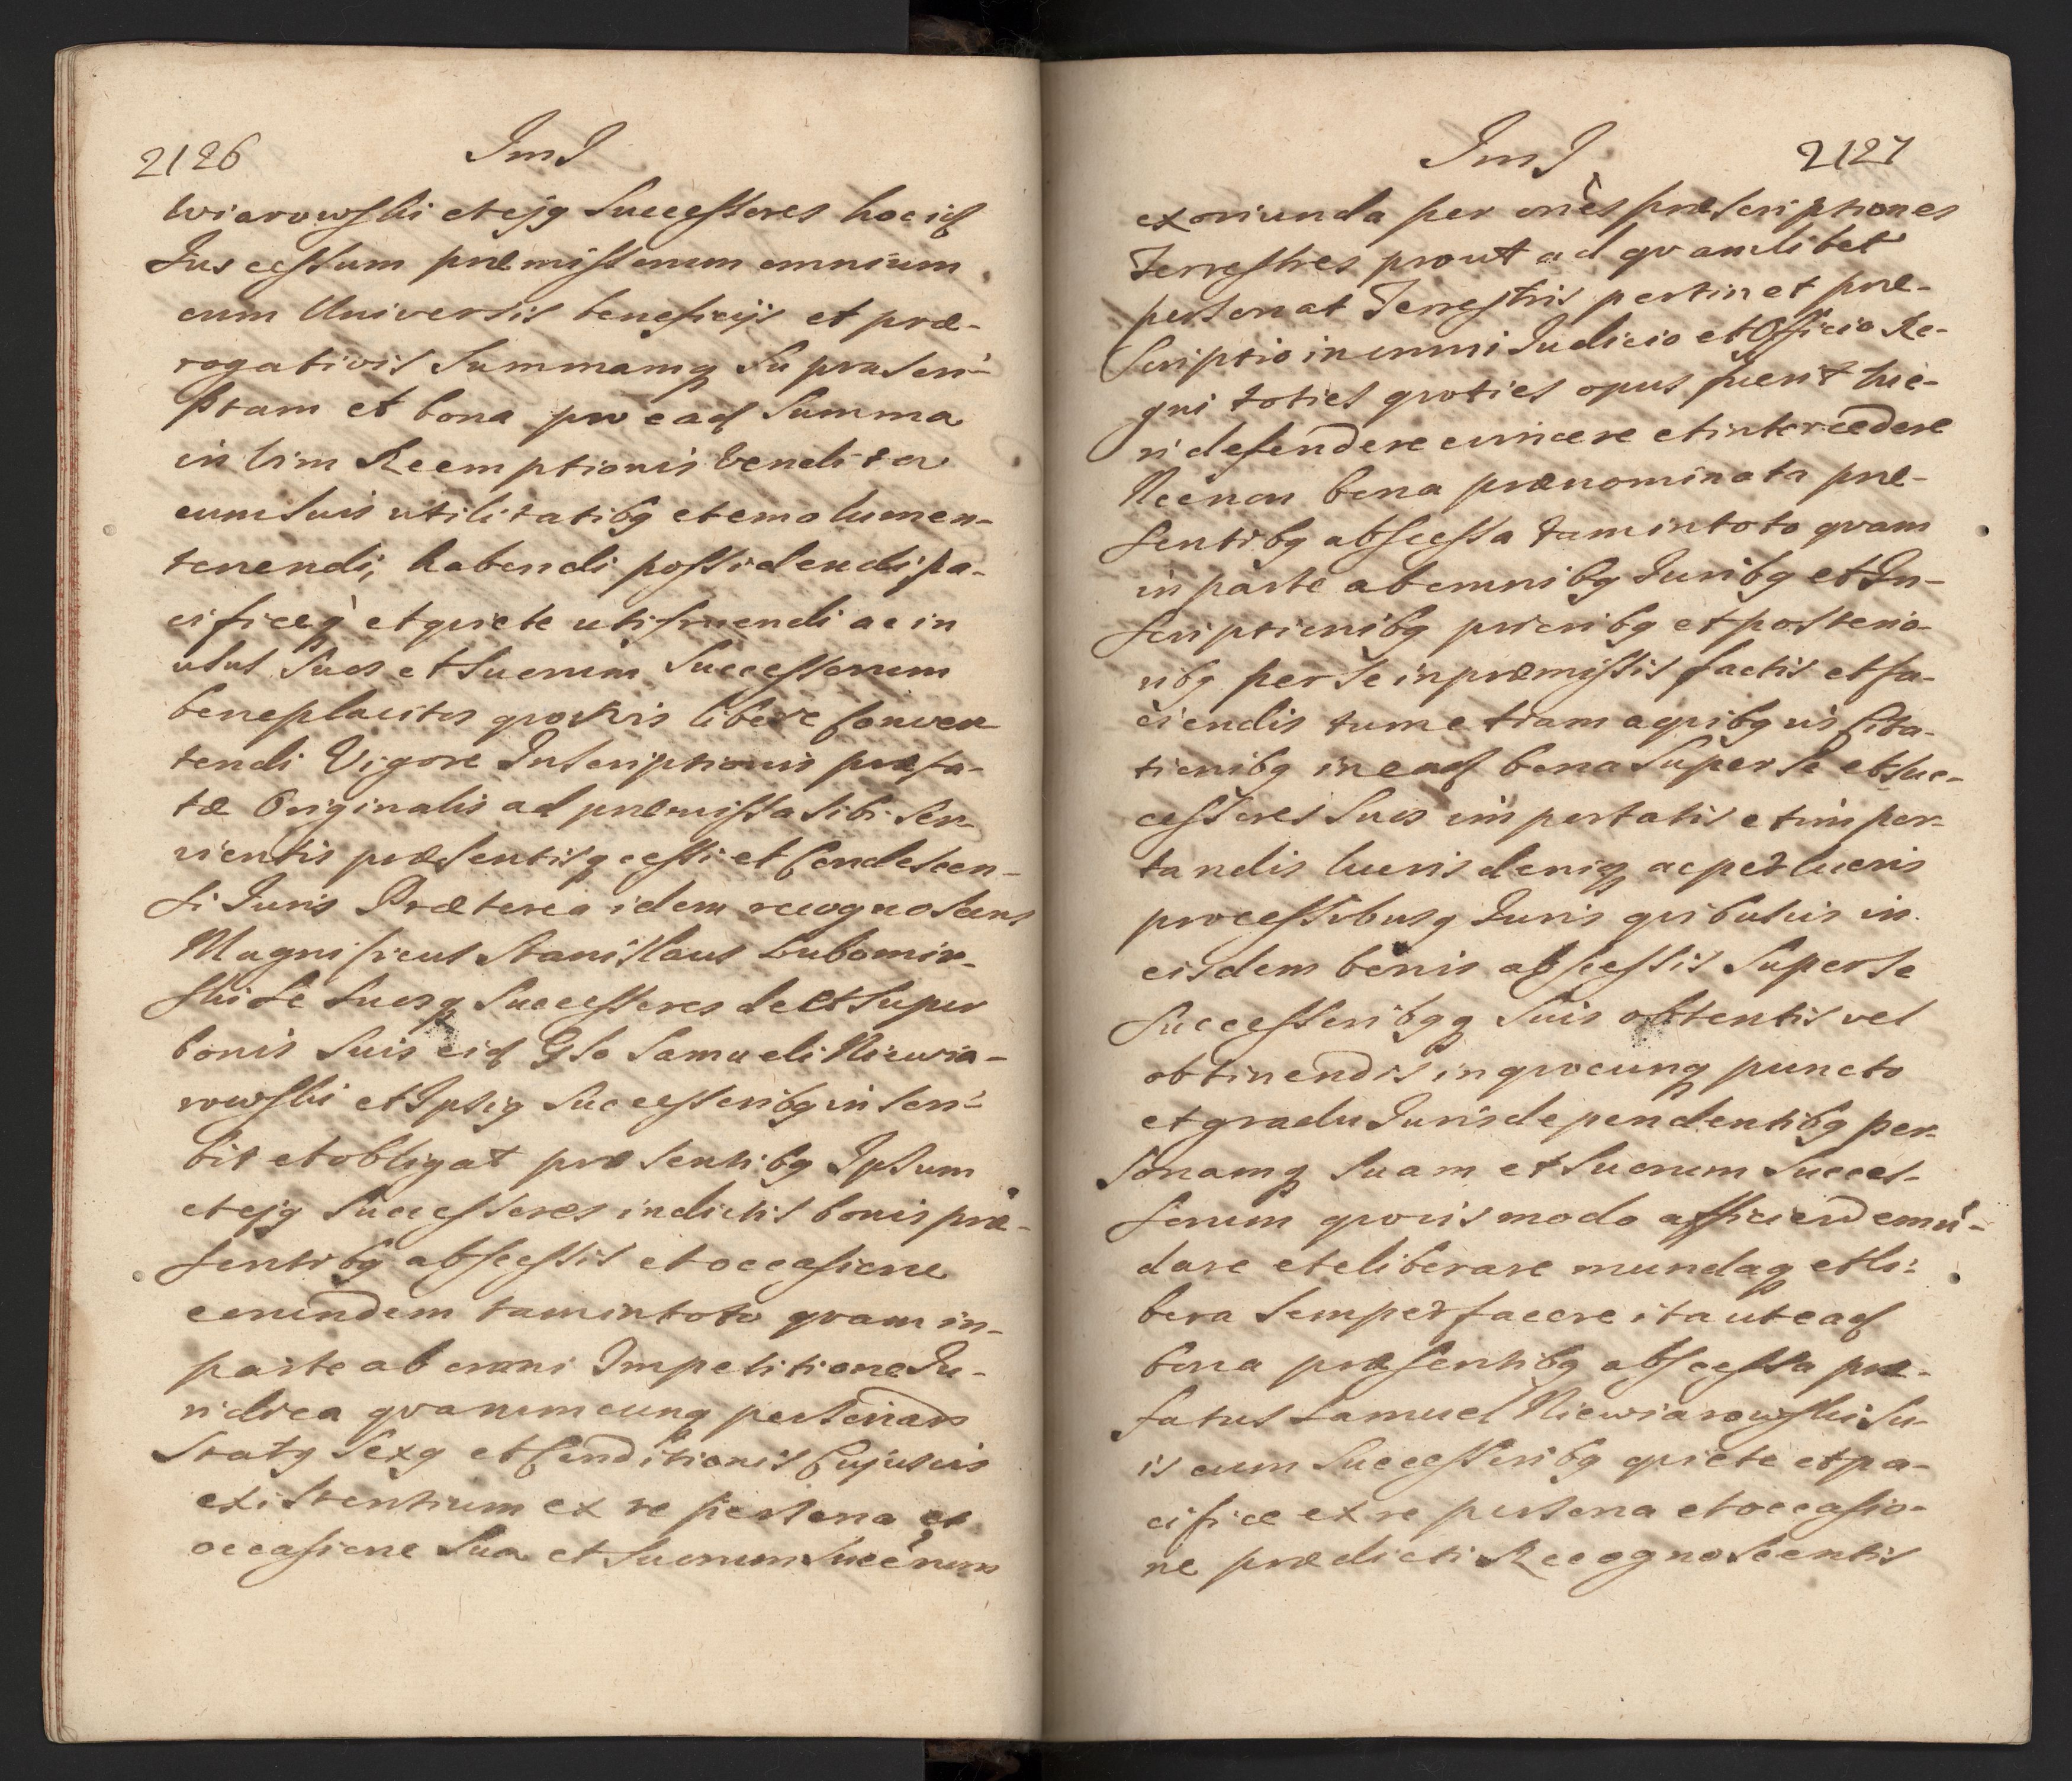 2126
ImJ
wiarowski et ejq Successores hoc id
Jus cessum præmissorum omnium
cum Universis beneficijs et præ-
rogativis Summamq Suprascri-
ptam et bona pro ead Summa
in Vim Reemptionis Vendita
cum Suis utilitatibq et emolumen-
tenendi, habendi possidendi pa-
cificeq et quiete utifruendi ac in
usus Suos et Suorum Successorum
beneplacitos quosvis libere Conver-
tendi Vigore Inscriptionis præfa-
tæ Originalis ad præmissa Sibi Ser-
vientis præsentisq cessi et Condescen-
si Juris Præterea idem recognoscens
Magnificus Stanislaus Lubomir-
ski Se Suosq Successores de et Super
bonis Suis eid Gso Samueli Niewia-
rowski et Ipsiq Successoribq inscri-
bit et obligat præsentibq Ipsum
et ejq Successores in dictis bonis præ-
sentibq abscessis et occasione
eorundem tam in toto quam in-
parte ab omni Impetitione Ju-
ridica quarumcunq personar
Statq Sexq et Conditionis Cujusvis
existentium ex re persona et
occasione Sua et Suorum Succrum
ImJ
2127
exoriunda per ones præscriptiones
Terrestres prout ad quamlibet
personat Terrestris pertinet præ-
scriptio in omni Judicio et Officio Re-
gni toties quoties opus fuerit tue-
ri defendere evincere et intercedere
Necnon bona prænominata præ-
sentibq abscessa tam in toto quam
in parte ab omnibq Juribq et In-
scriptionibq prioribq et posterio-
ribq per se in præmissis factis et fa-
ciendis tum etiam a quibqvis Cita-
tionibq in ead bona Super Se et Suc-
cessores Suos importatis et impor-
tandis lucris deniq ac perlucris
processibusq Juris quibusvis in
eisdem bonis abscessis Super Se
Successoribqq Suis obtentis vel
obtinendis in quocunq puncto
et gradu Juris dependentibq per-
sonamq Suam et Suorum Succes-
sorum quovis modo afficiend emun-
dare et eliberare mundaq et li-
bera Semper facere ita ut ead
bona præsentibq abscessa præ-
fatus Samuel Niewiarowski Su-
is cum Successoribq quiete et pa-
cifice ex re persona et occasio-
ne prædicti Recognoscentis